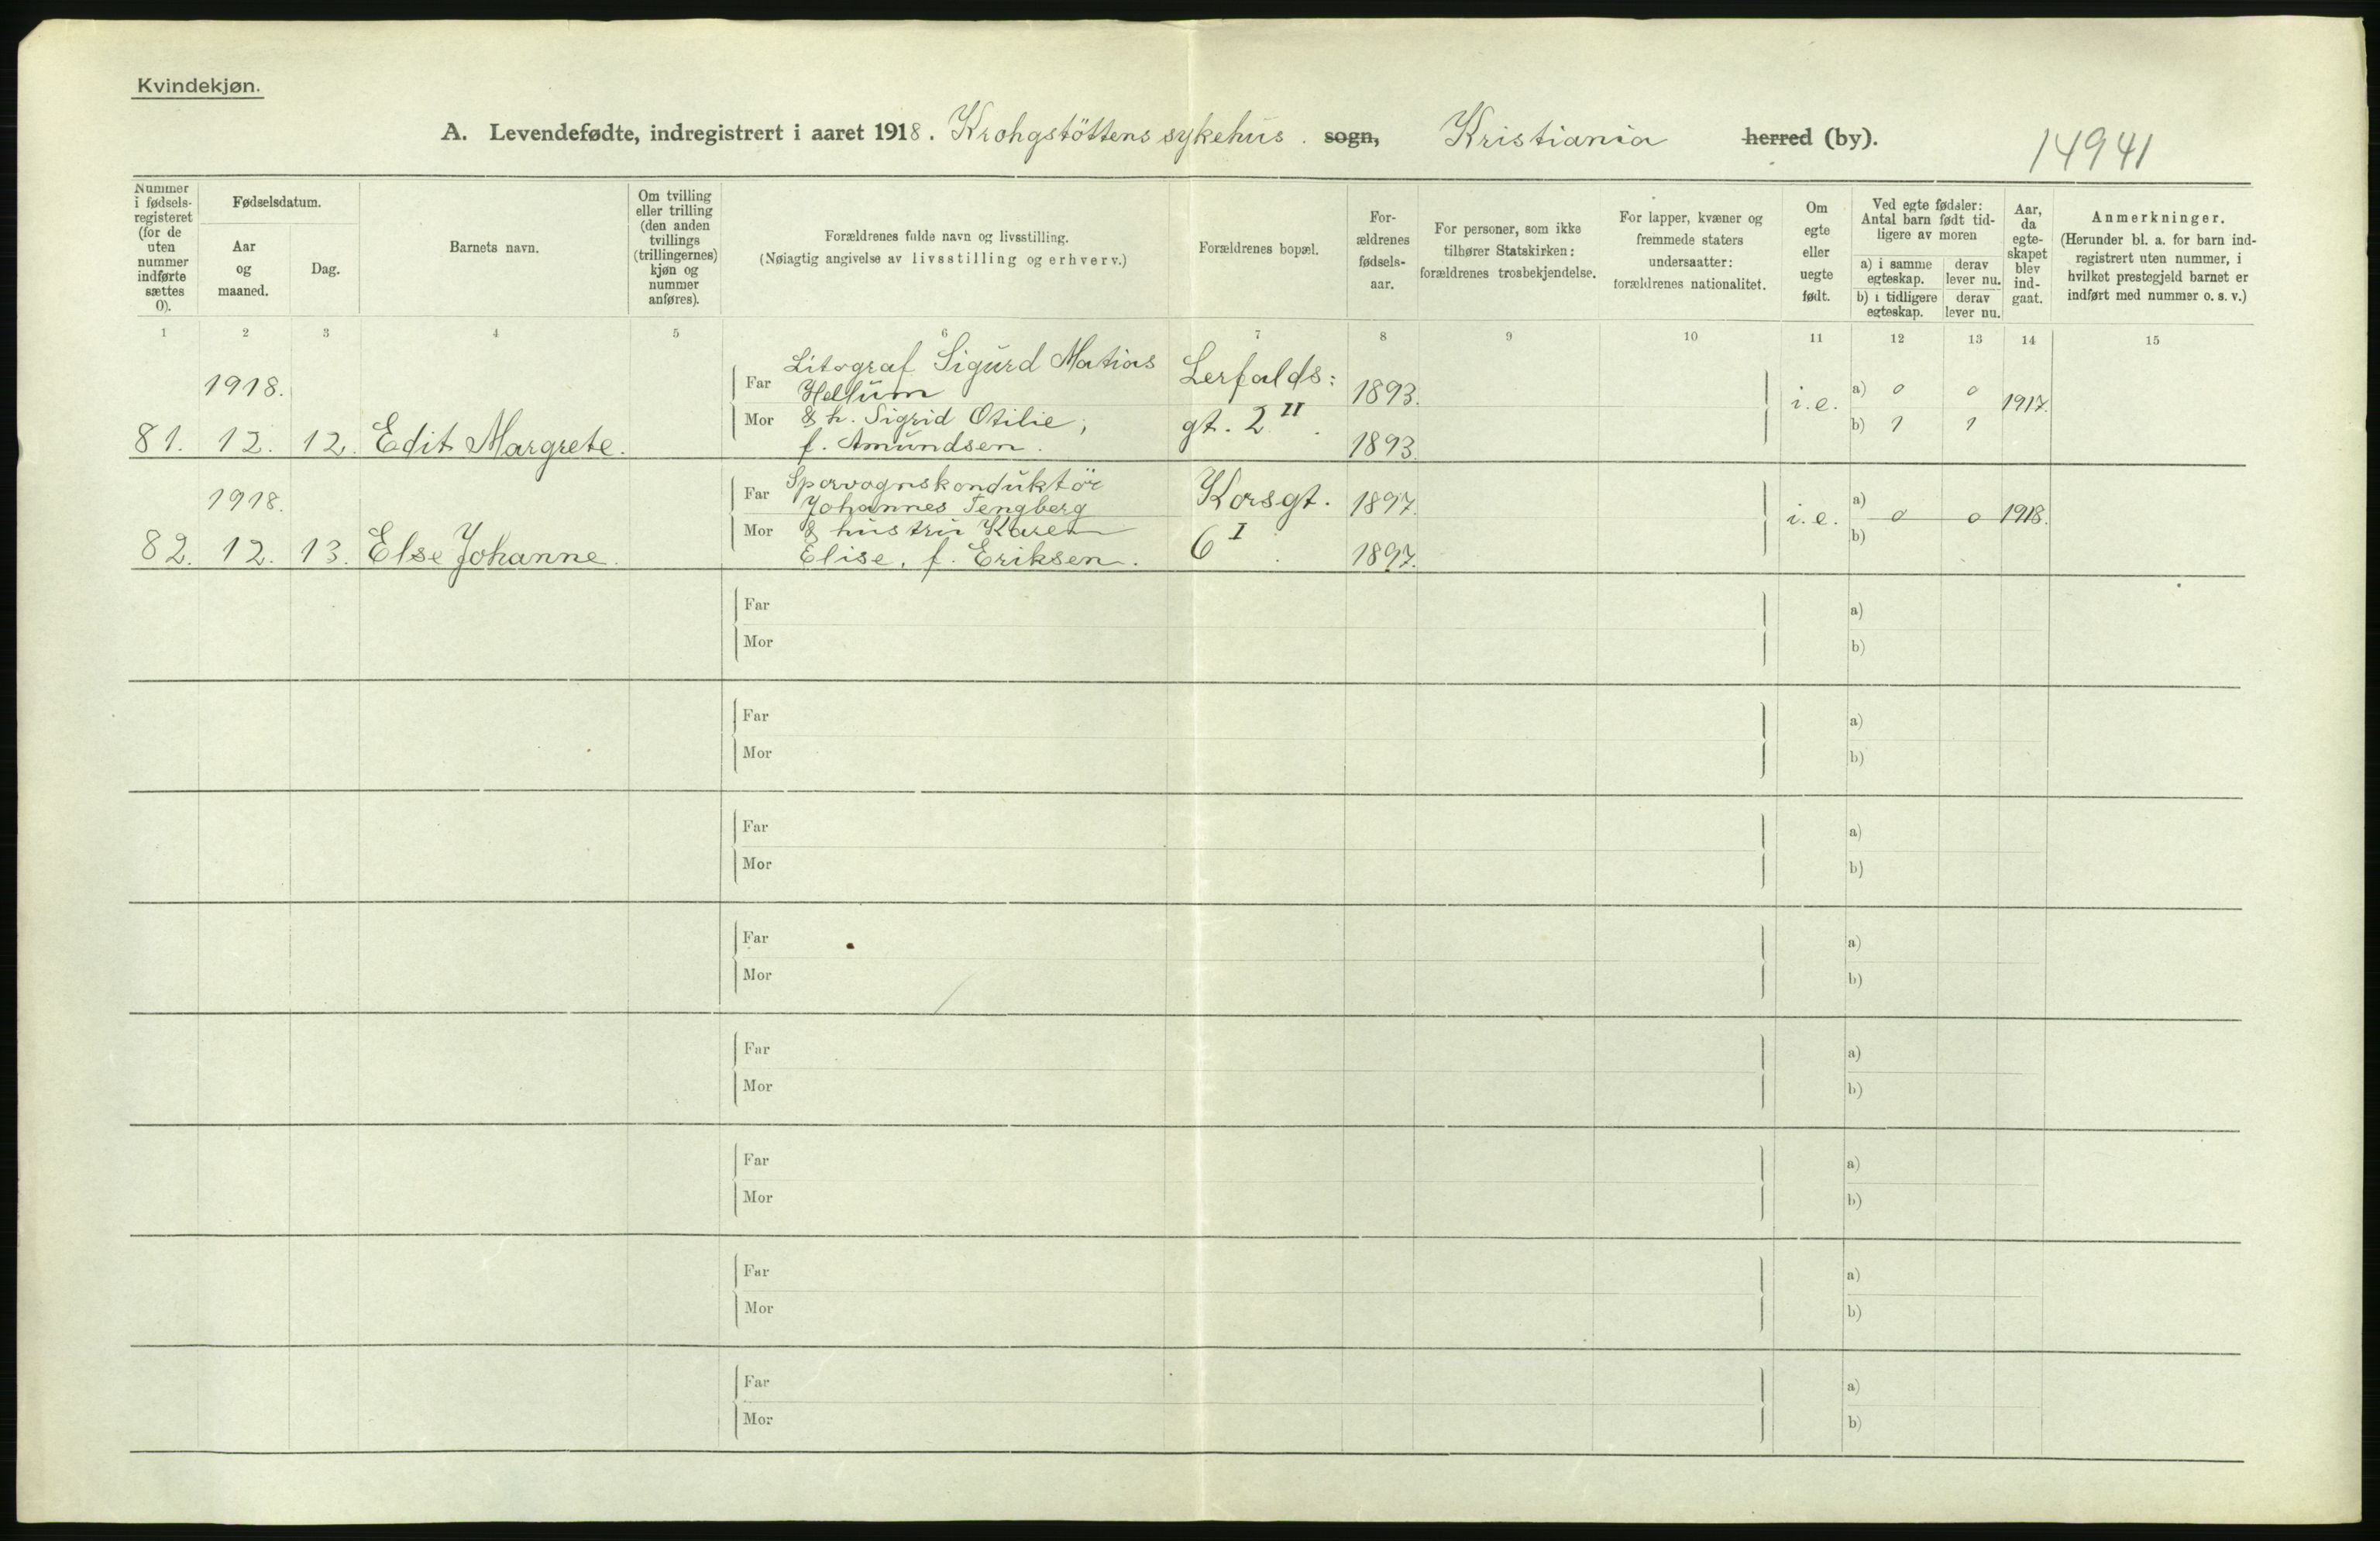 Kvindekjøn.
A. Levendefødte, indregistrert i aaret 1918. Krohgstöttens sykehus. sogn, Kristiania herred (by).
14941
Nummer i fødselsregisteret (for de uten nummer indførte sættes 0).
Fødselsdatum.
Aar og maaned.
Dag.
Barnets navn.
Om tvilling eller trilling (den anden tvillings (trillingernes) kjøn og nummer anføres).
Forældrenes fulde navn og livsstilling.
(Nøiagtig angivelse av livsstilling og erhverv.)
Forældrenes bopæl.
Forældrenes fødselsaar.
For personer, som ikke tilhører Statskirken: forældrenes trosbekjendelse.
For lapper, kvæner og fremmede staters undersaatter: forældrenes nationalitet.
Om egte eller uegte født.
Ved egte fødsler: Antal barn født tidligere av moren
a) i samme egteskap.
derav lever nu.
b) i tidligere egteskap.
derav lever nu.
Aar, da egteskapet blev indgaat.
Anmerkninger.
(Herunder bl. a. for barn indregistrert uten nummer, i hvilket prestegjeld barnet er indført med nummer o. s. v.)
1 2 3 4 5 6 7 8 9 10 11 12 13 14 15
1918.
81. 12. 12. Edit Margrete.
Far Litograf Sigurd Matias
Hellum
Mor & h. Sigrid Otilie,
f. Amundsen.
Lerfalds:
gt. 2 II.
1893.
1893.
i.e.
a) 0 0
b) 1 1
1917.
1918.
82. 12. 13. Else Johanne.
Far Sporvognskonduktör
Johannes Tengberg
Mor & hustru Karen
Elise, f. Eriksen.
Korsgt.
6 I.
1897.
1897.
i.e.
a)
0 0
b)
1918.
Far
Mor
a)
b)
Far
Mor
a)
b)
Far
Mor
a)
b)
Far
Mor
a)
b)
Far
Mor
a)
b)
Far
Mor
a)
b)
Far
Mor
a)
b)
Far
Mor
a)
b)